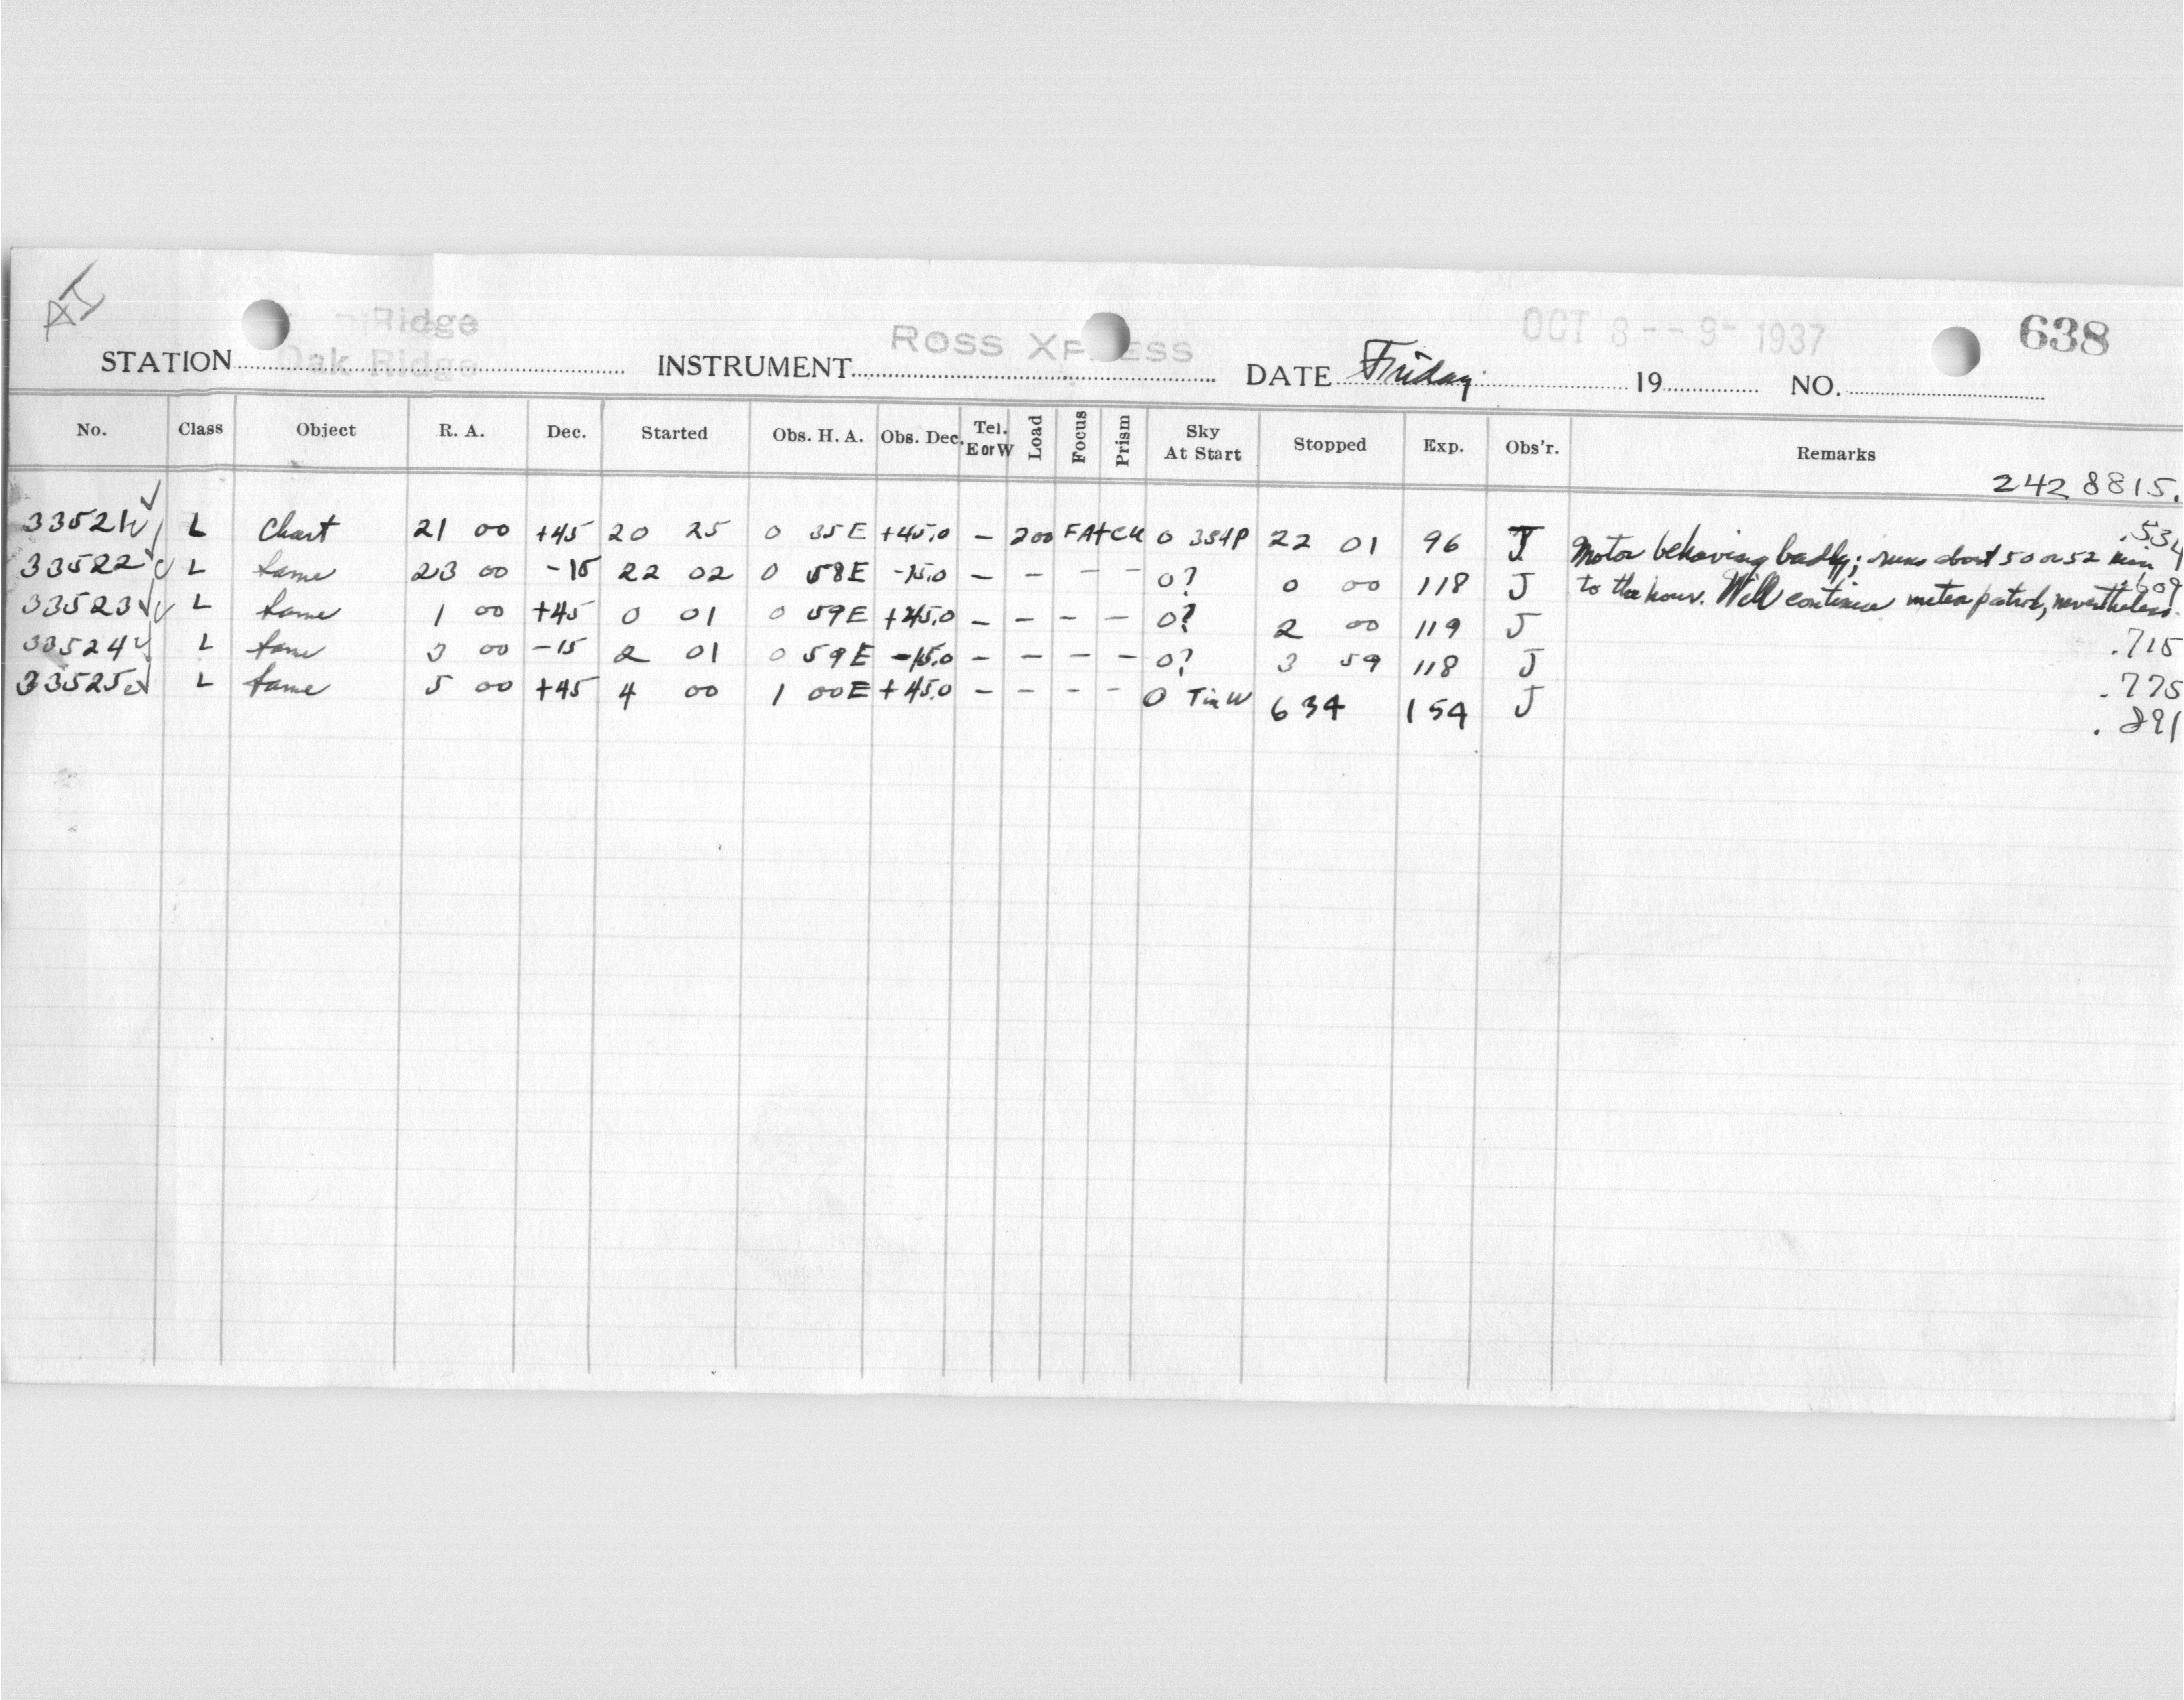 AI
Ridge
Oak Ridge
STATION INSTRUMENT ROSS XPRESS DATE Friday OCT 8--9- 1937 19 NO. 638
No. Class Object R. A. Dec. Started Obs. H. A. Obs. Dec. Tel. E or W Load Focus Prism Sky At Start Stopped Exp. Obs'r. Remarks
242 8815.
33521 L Chart 21 00 +45 20 25 0 35 E +45.0 — 200 FATCU 0 384P 22 01 96 J Motor behaving badly; runs about 50 or 52 min .534
33522 L Same 23 00 -15 22 02 0 58 E -15.0 — — — — 0? 0 00 118 J to the hour. Will continue meteor patrol, nevertheless. .609
33523 L Same 1 00 +45 0 01 0 59 E +45.0 — — — — 0? 2 00 119 J .715
33524 L Same 3 00 -15 2 01 0 59 E -15.0 — — — — 0? 3 59 118 J .775
33525 L Same 5 00 +45 4 00 1 00 E +45.0 — — — — 0 Tin W 6 34 154 J .891